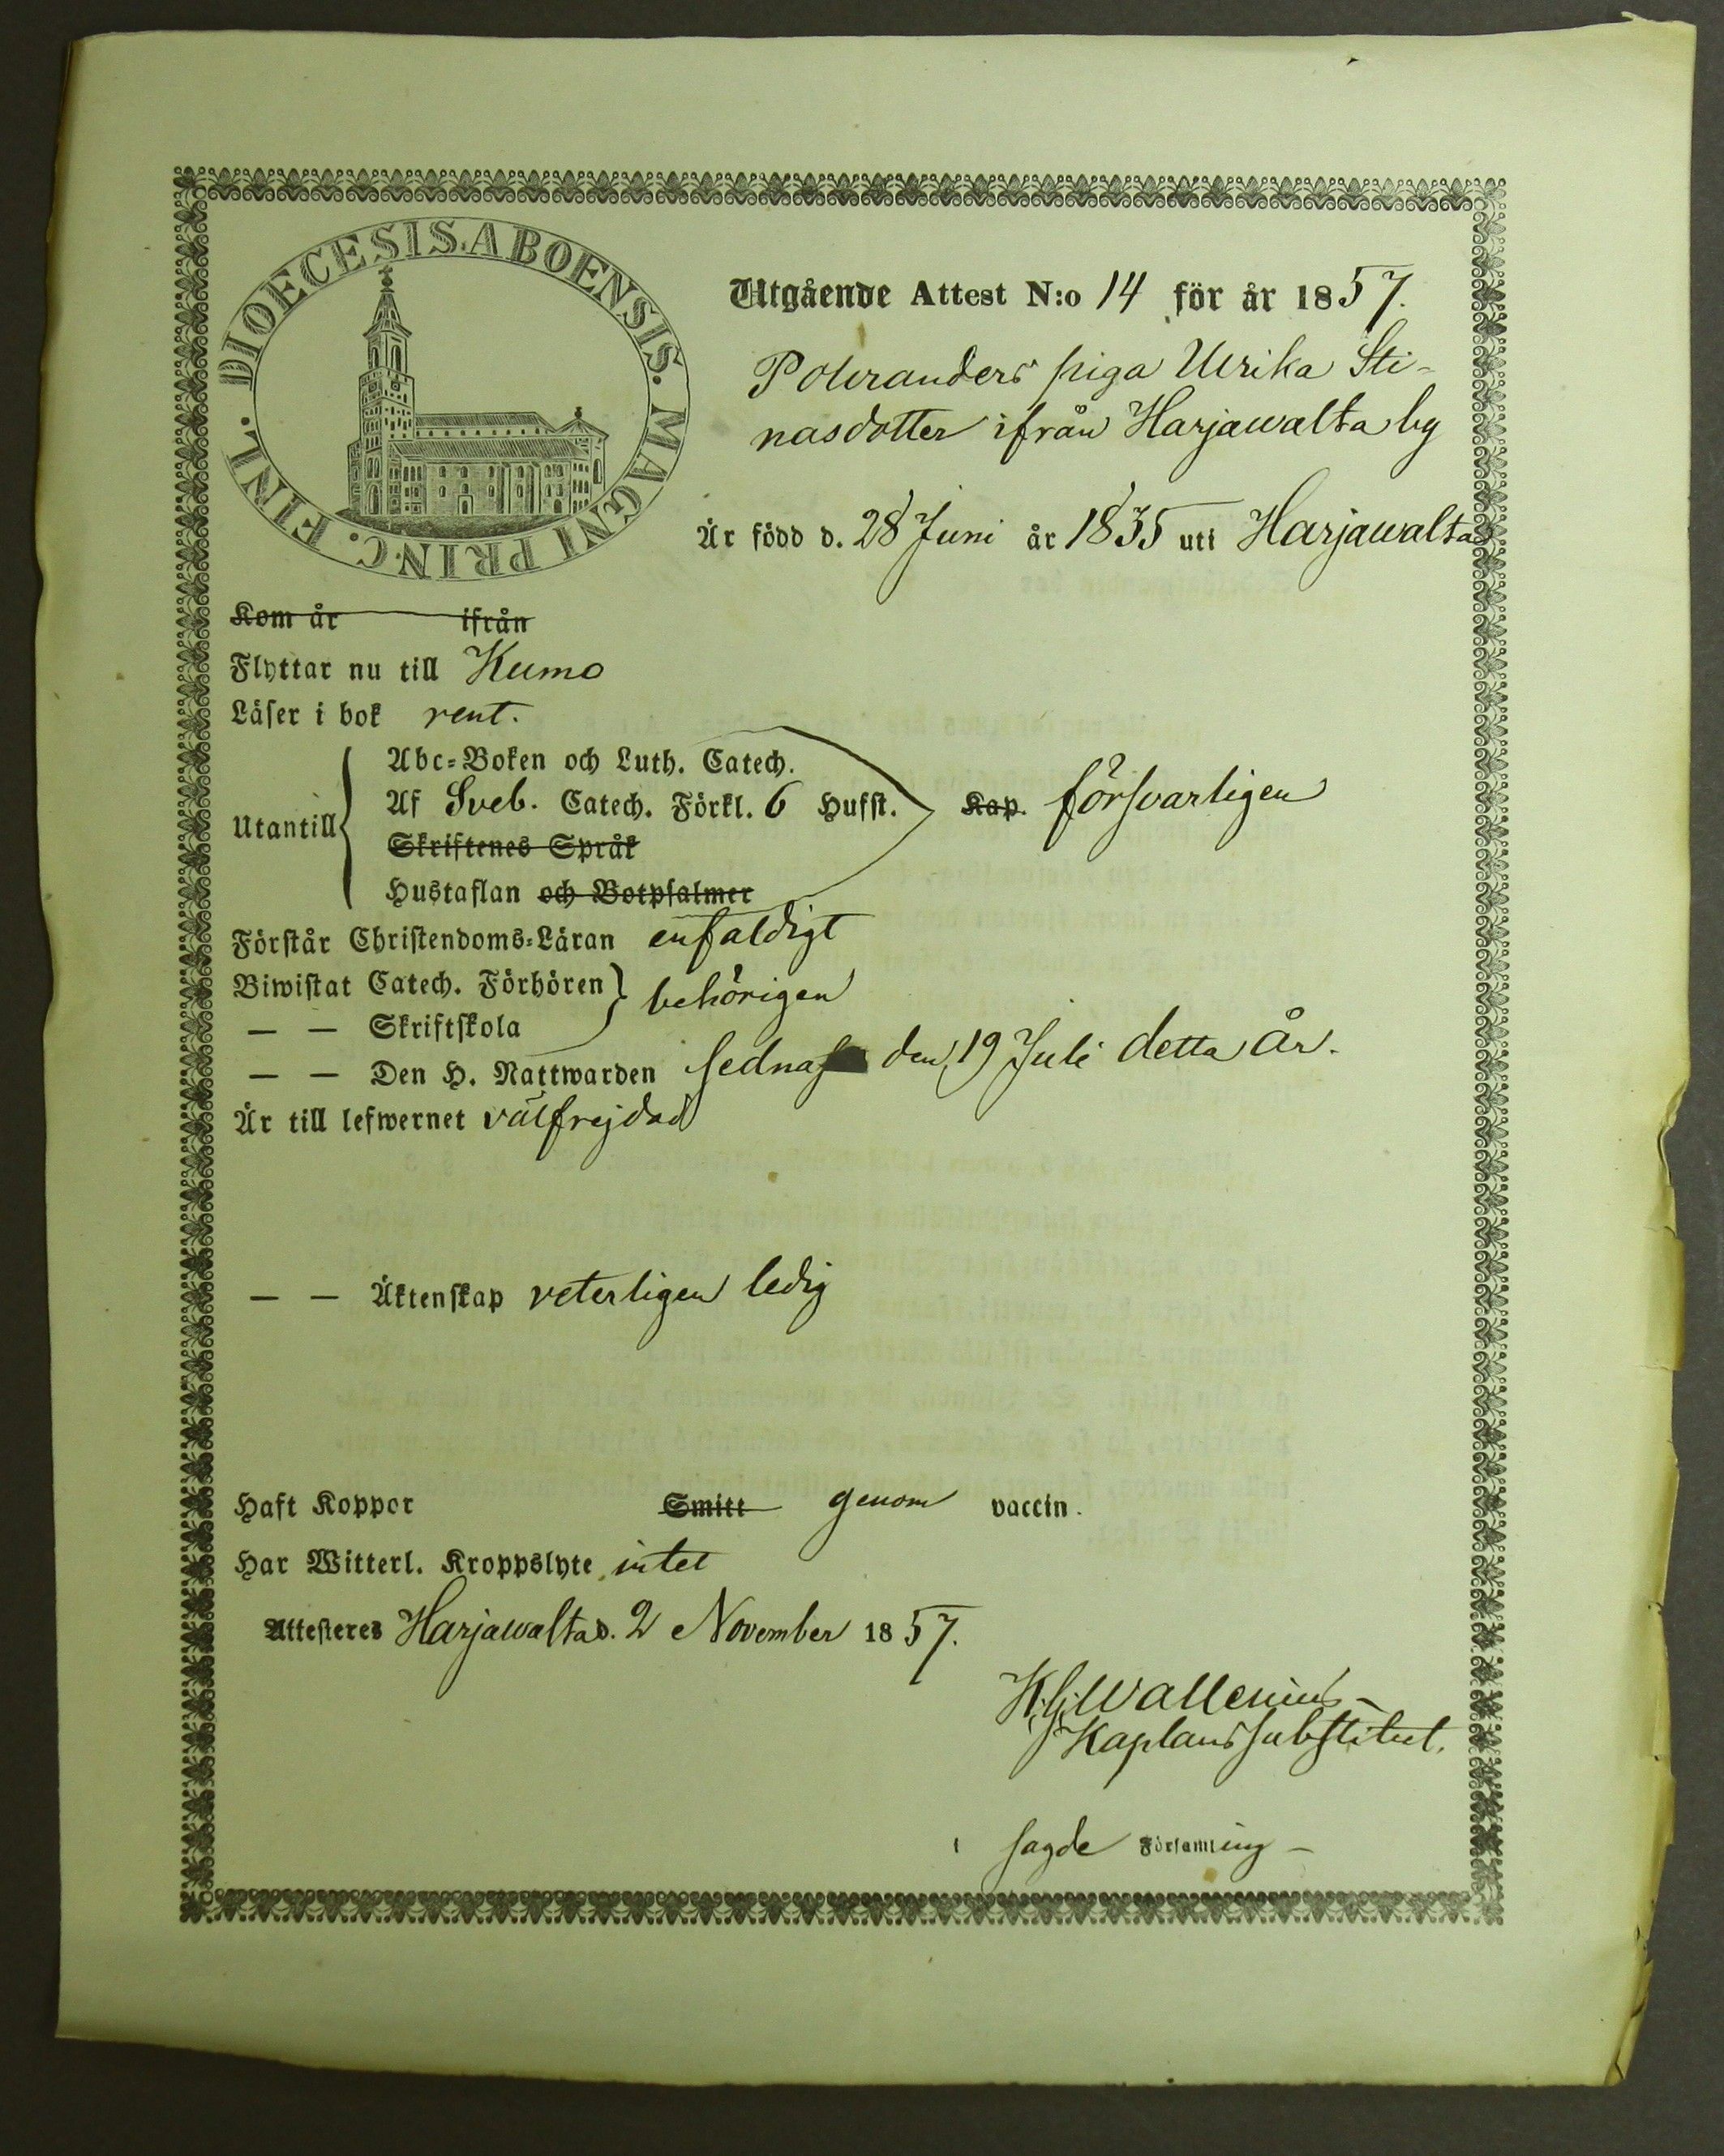 DIOECESIS ABOENSIS. MAGNI PRINC. FINL.
Utgående Attest N:o 14 för år 1857.
piga Ulrika Sti-
nasdotter ifrån Harjawalta by
Är född d. 28 Juni år 1835 uti Harjawalta
Kom år ifrån
Flyttar nu till Kumo
Läser i bok rent.
Utantill
Abc-Boken och Luth. Catech.
Af Sveb. Catech. Förkl. 6 Hufst. Kap. försvarligen
Skriftenes Språk
Hustaflan och Botpsalmer
Förstår Christendoms-Läran enfaldigt
Biwistat Catech. Förhören behörigen
— — Skriftskola
— — Den H. Nattwarden sednast den 19 Juli detta år.
Är till lefwernet välfrejdad
— — Äktenskap veterligen ledig
Haft Koppor Smitt genom vaccin.
Har Witterl. Kroppslyte intet
Attesteres Harjawalta d. 2 November 1857.
Wallenius
Kaplans substitut.
i sagde Församling